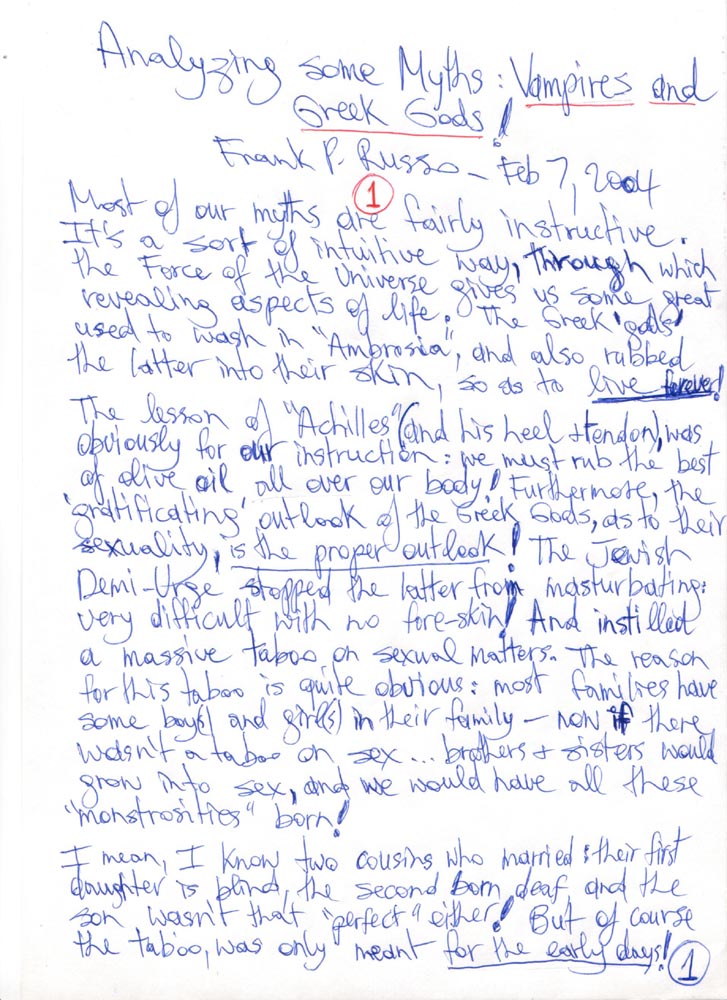 Analyzing some Myths: Vampires and
Greek Gods!
Frank P. Russo – Feb 7, 2004
1
Most of our myths are fairly instructive.
It's a sort of intuitive way, through which
the Force of the Universe gives us some great
revealing aspects of life. The Greek 'gods'
used to wash in "Ambrosia", and also rubbed
the latter into their skin, so as to live forever!
The lesson of "Achilles" (and his heel +tendon) was
obviously for our instruction: we must rub the best
of olive oil all over our body! Furthermore, the
'gratificating' outlook of the Greek Gods, as to their
sexuality, is the proper outlook! The Jewish
Demi-Urge stopped the latter from masturbating:
very difficult with no fore-skin! And instilled
a massive taboo on sexual matters. The reason
for this taboo is quite obvious: most families have
some boy(s) and girl(s) in their family – now if there
wasn't a taboo on sex... brothers + sisters would
grow into sex, and we would have all these
"monstrosities" born!
I mean, I know two cousins who married: their first
daughter is blind, the second born deaf and the
son wasn't that "perfect" either! But of course
the taboo, was only meant for the early days!
1